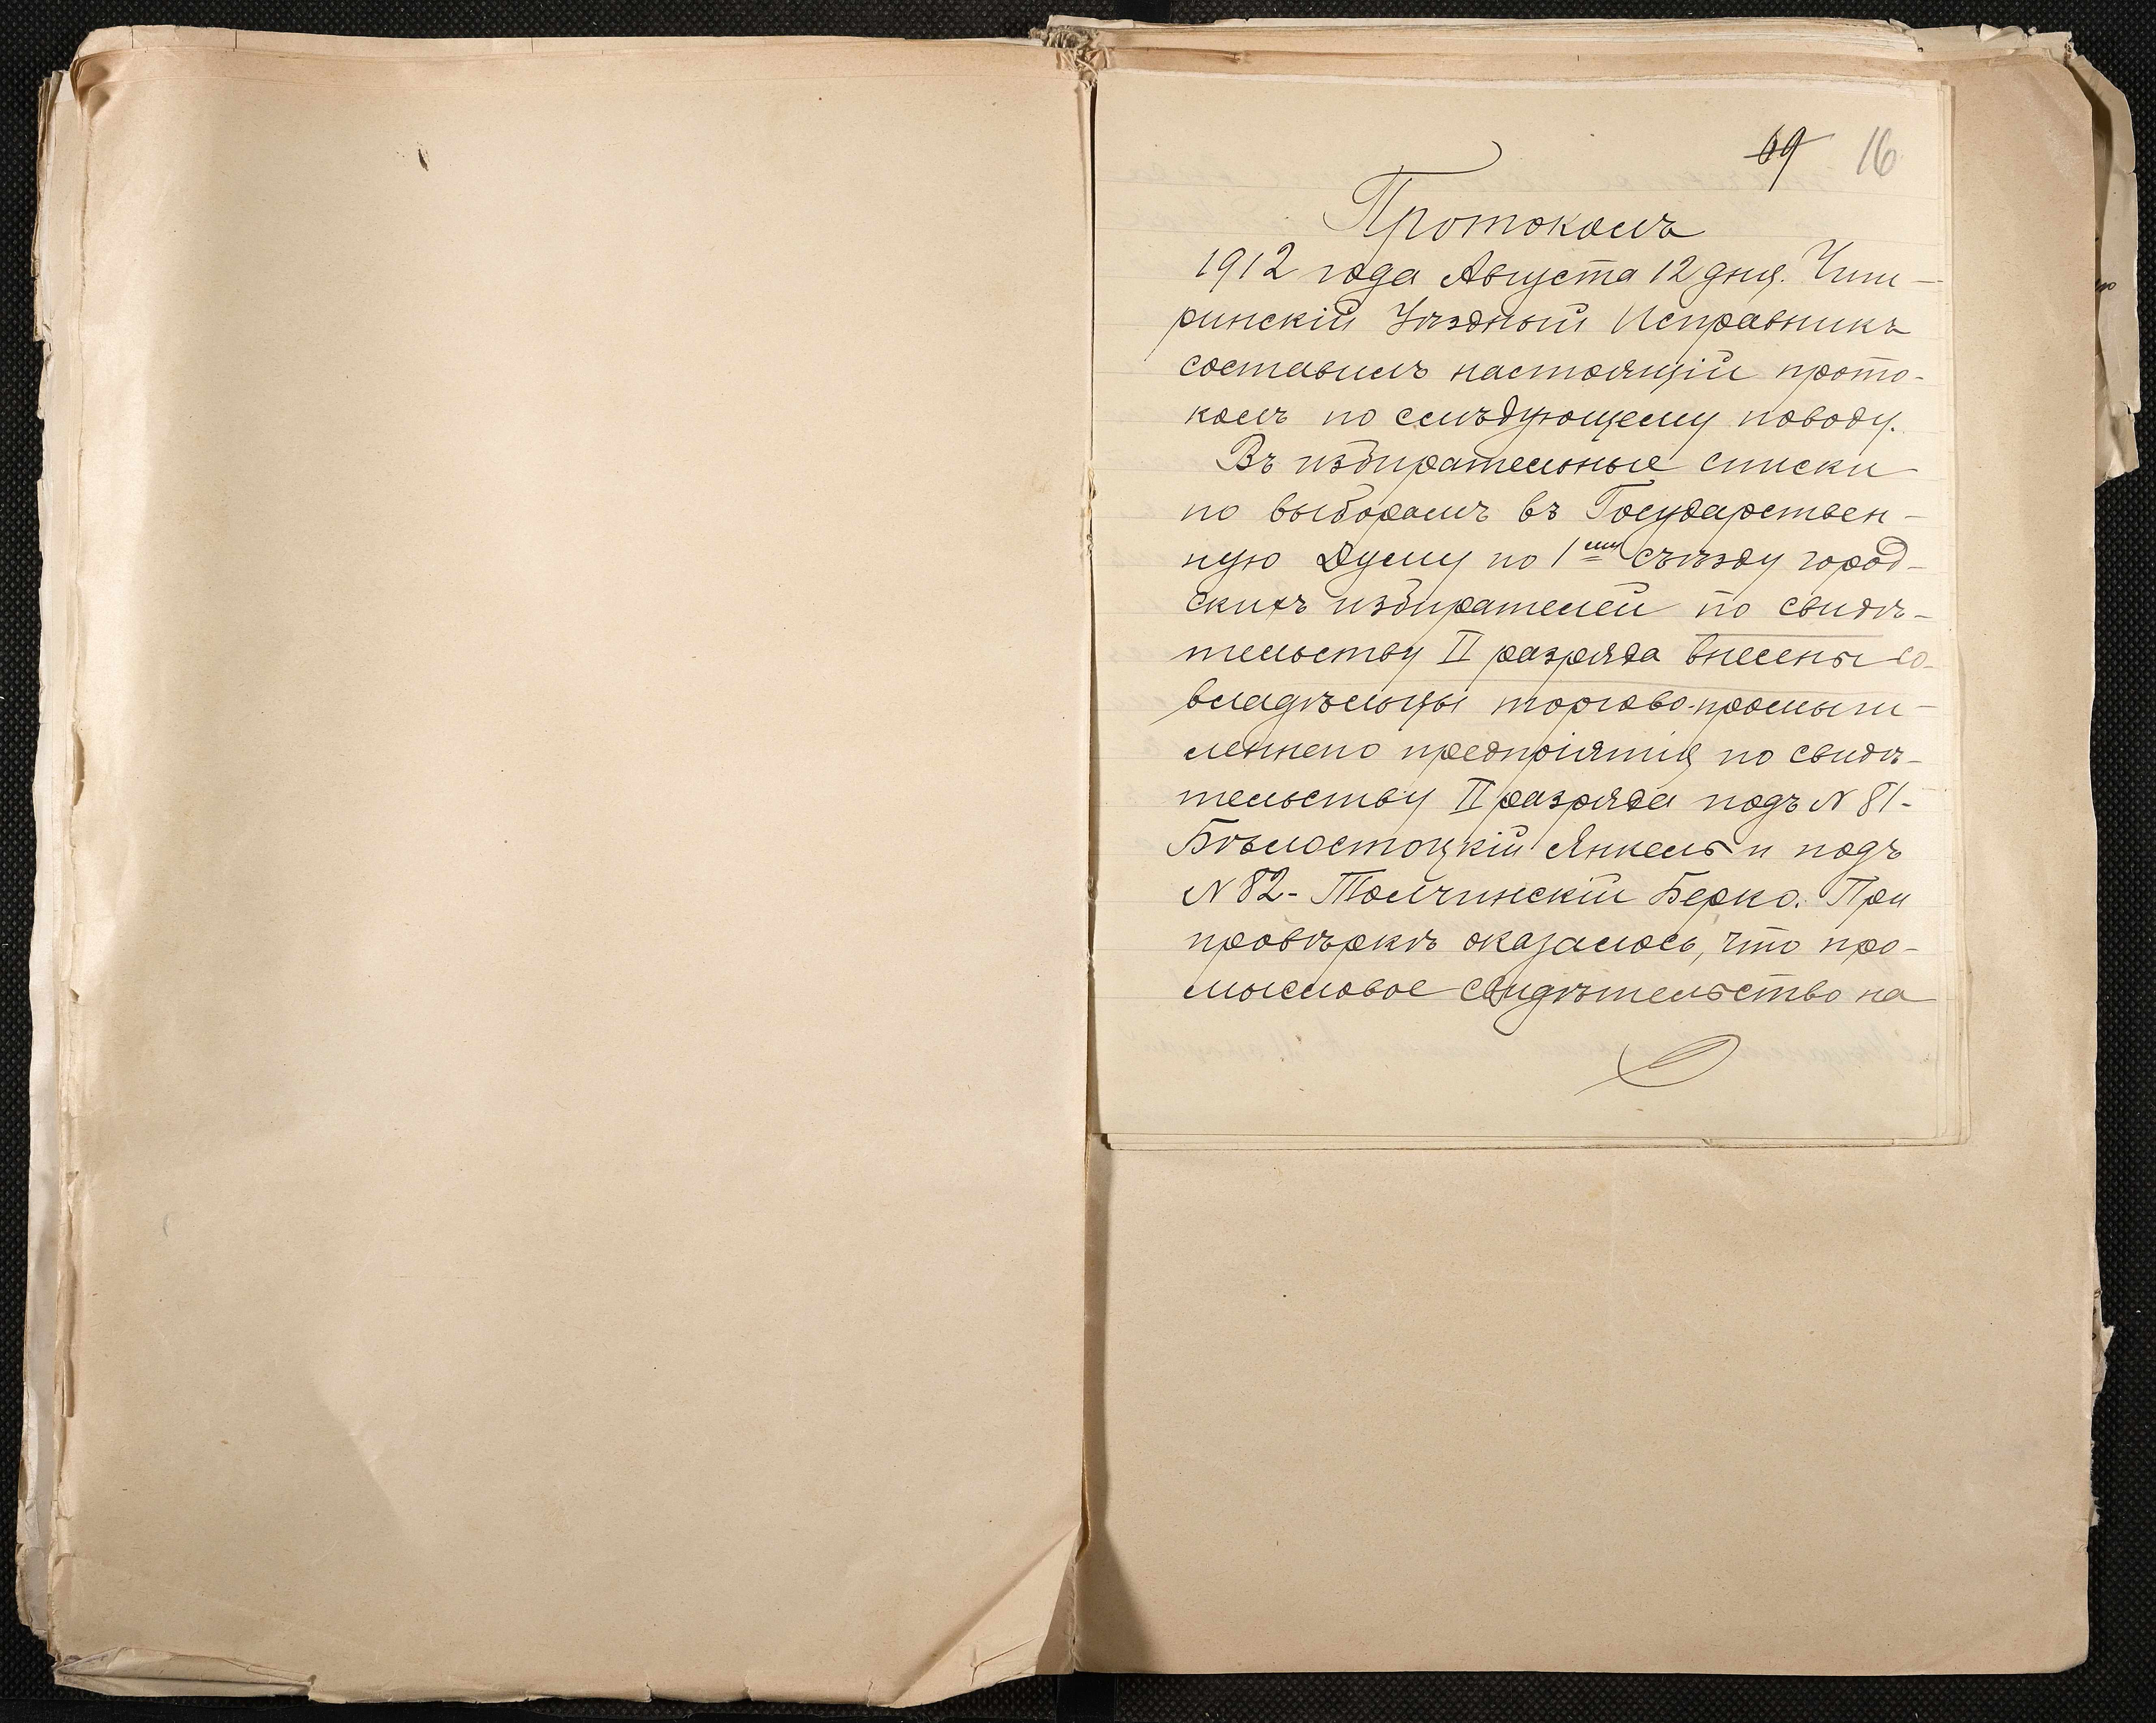 69 16
Протоколъ
1912 года Августа 12 дня. Чиги-
ринскій Уѣздный Исправникъ
составилъ настоящій прото-
колъ по слѣдующему поводу.
Въ избирательные списки
по выборамъ въ Государствен-
ную Думу по 1му съѣзду город-
скихъ избирателей по свидѣ-
тельству II разряда внесены со-
владѣльцы торгово-промыш-
леннаго предпріятія по свидѣ-
тельству II разряда подъ № 81-
Бѣлостоцкій Янкель и подъ
№ 82- Толчинскій Берко. При
провѣркѣ оказалось, что про-
мысловое свидѣтельство на